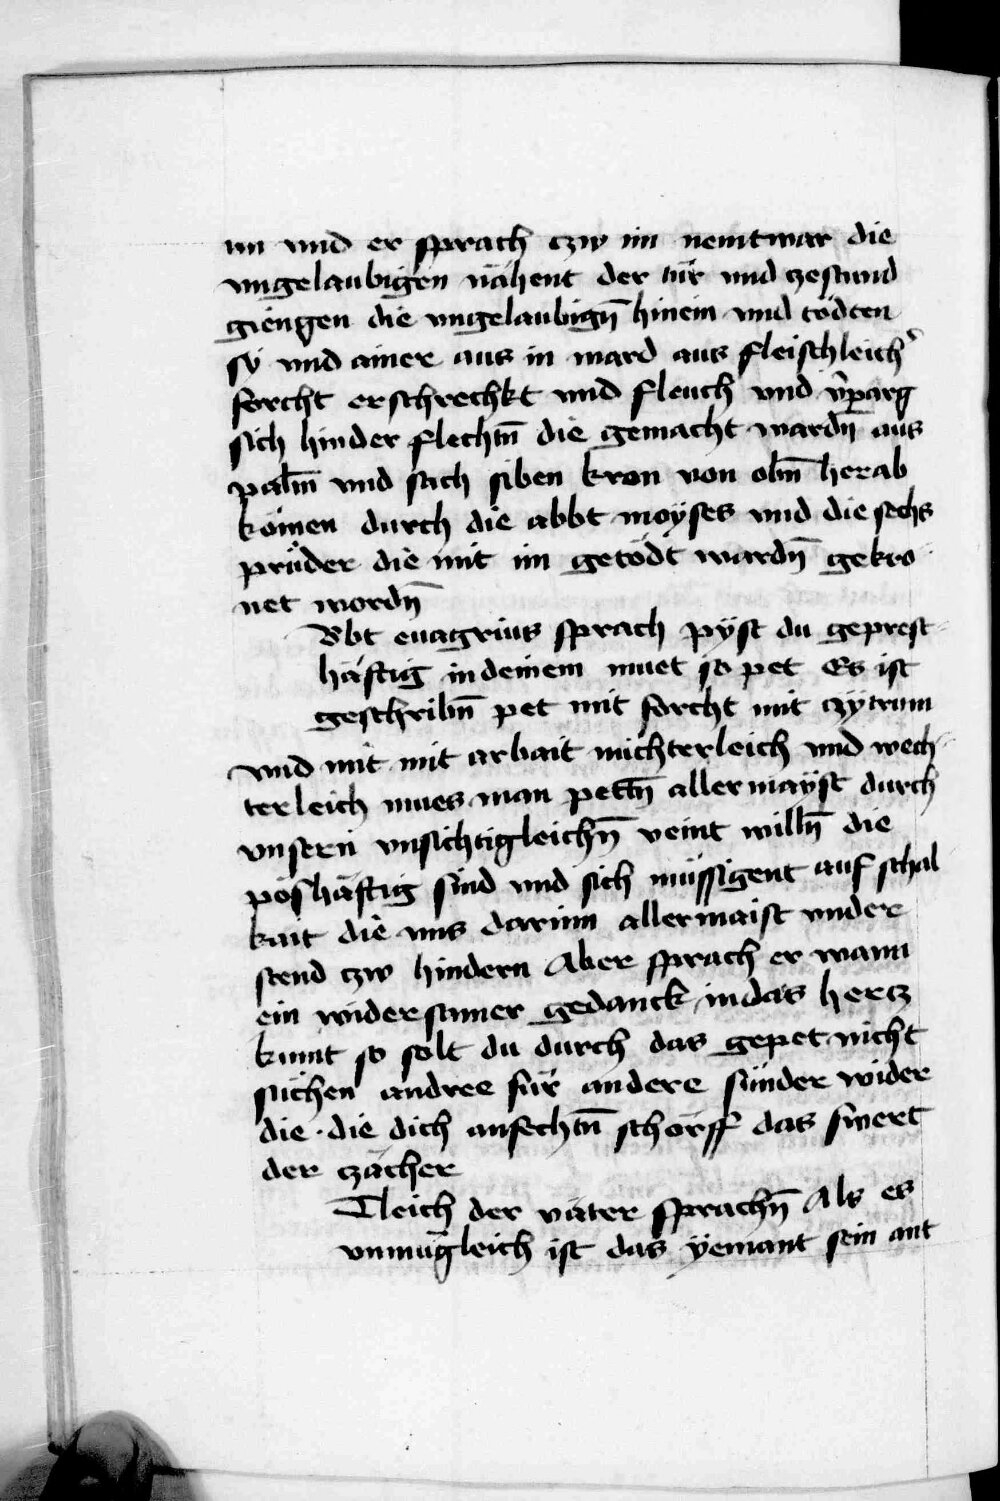 im vnd er sprach czw im nemtwar die
vngelaubigen nähent der tür vnd zestund
giengen die vngelaubign̄ hinein vnd tödten
sy vnd ainer aus in ward aus fleischleich
forcht erschrechkt vnd fleuch vnd v̂parg
sich hinder flechtn̄ die gemacht wardn̄ aus
palm̄ vnd sach siben kron von obn̄ herab
kömen durch die abbt moyses vnd die sechs
prüder die mit im getödt wardn̄ gekro
net wordn̄
Abt euagrius sprach pyst du geprest
häftig in deinem muet so pet Es ist
geschribn̄ pet mit forcht mit czytrum
vnd mit mit arbait nüchterleich vnd wech
terleich mues man pettn̄ aller mayst durch
vnsern vnsichtigleichn̄ veint willn̄ die
poshäftig sind vnd sich müssigent auf schal
kait die vns darinn allermaist vnder
stend czw hindern Aber sprach er wann
ein widersamer gedanck in das hercz
kumt so solt du durch das gepet nicht
süchen andree für andere sünder wider
die die dich anfechtn̄ schörff das swert
der czächer
Etleich der väter sprachn̄ Als es
vnmügleich ist das yemant sein ant